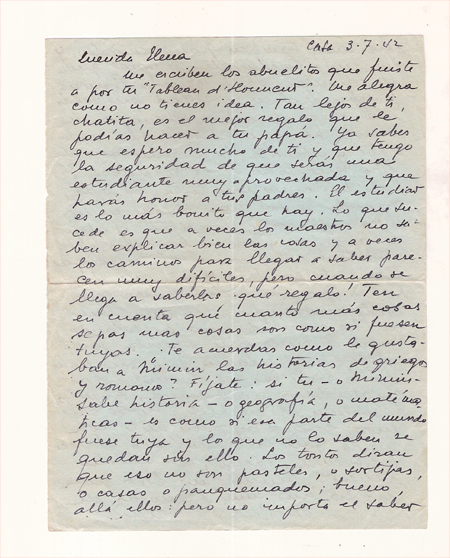 Casa 3.7.52
Querida Elena
me escriben los abuelitos que fuiste
a por tu "Tableau d'Honneur". Me alegra
como no tienes idea. Tan lejos de ti,
chatita, es el mejor regalo que le
podías hacer a tu papá. Ya sabes
que espero mucho de ti y que tengo
la seguridad de que serás una
estudiante muy aprovechada y que
harás honor a tus padres. El estudiar
es lo más bonito que hay. Lo que su-
cede es que a veces los maestros no sa-
ben explicar bien las cosas y a veces
los caminos para llegar a saber pare-
cen muy difíciles, pero cuando se
llega a saberlos ¡qué regalo! Ten
en cuenta que cuanto más cosas
sepas mas cosas son como si fuesen
tuyas. Te acuerdas como le gusta-
ban a Mimín las historias de griegos
y romanos? Fíjate: si tu - o Mimín -
sabe historia - o geografía, o matemá-
ticas - es como si esa parte del mundo
fuese tuya y los que no lo saben se
quedan sin ello. Los tontos dirán
que eso no son pasteles, o sortijas,
o casas o panquemados; bueno,
allá ellos: pero no importa el saber